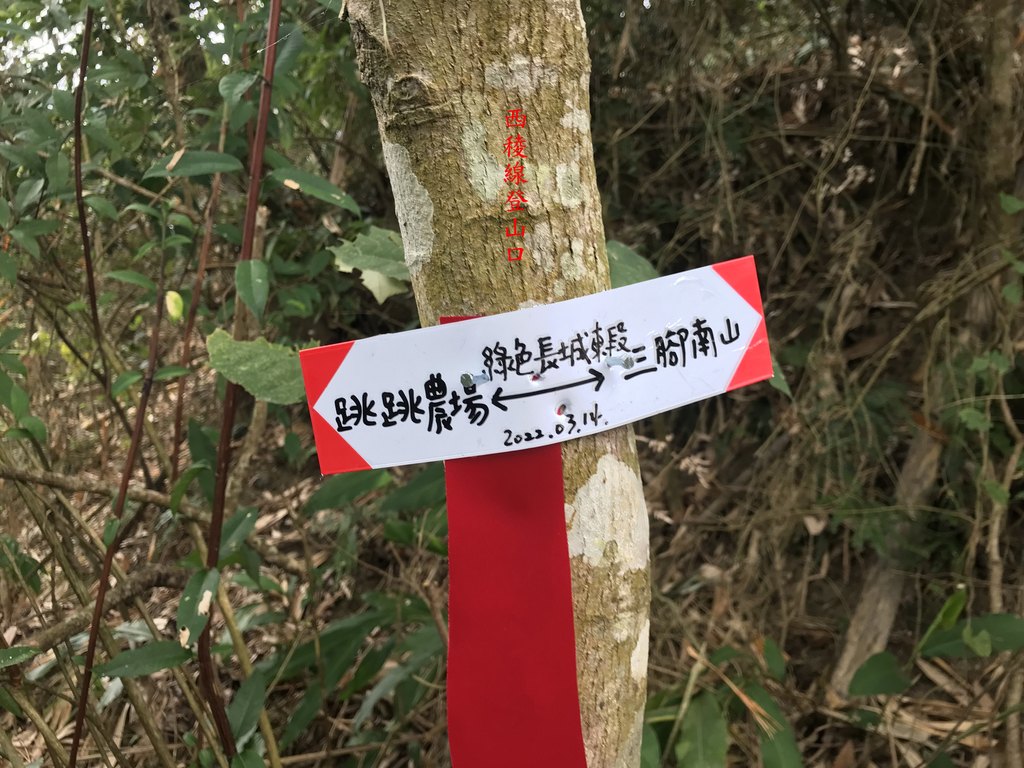 西稜線登山口
綠色長城東段
跳跳農場 ←→ 三腳南山
2022.03.14.